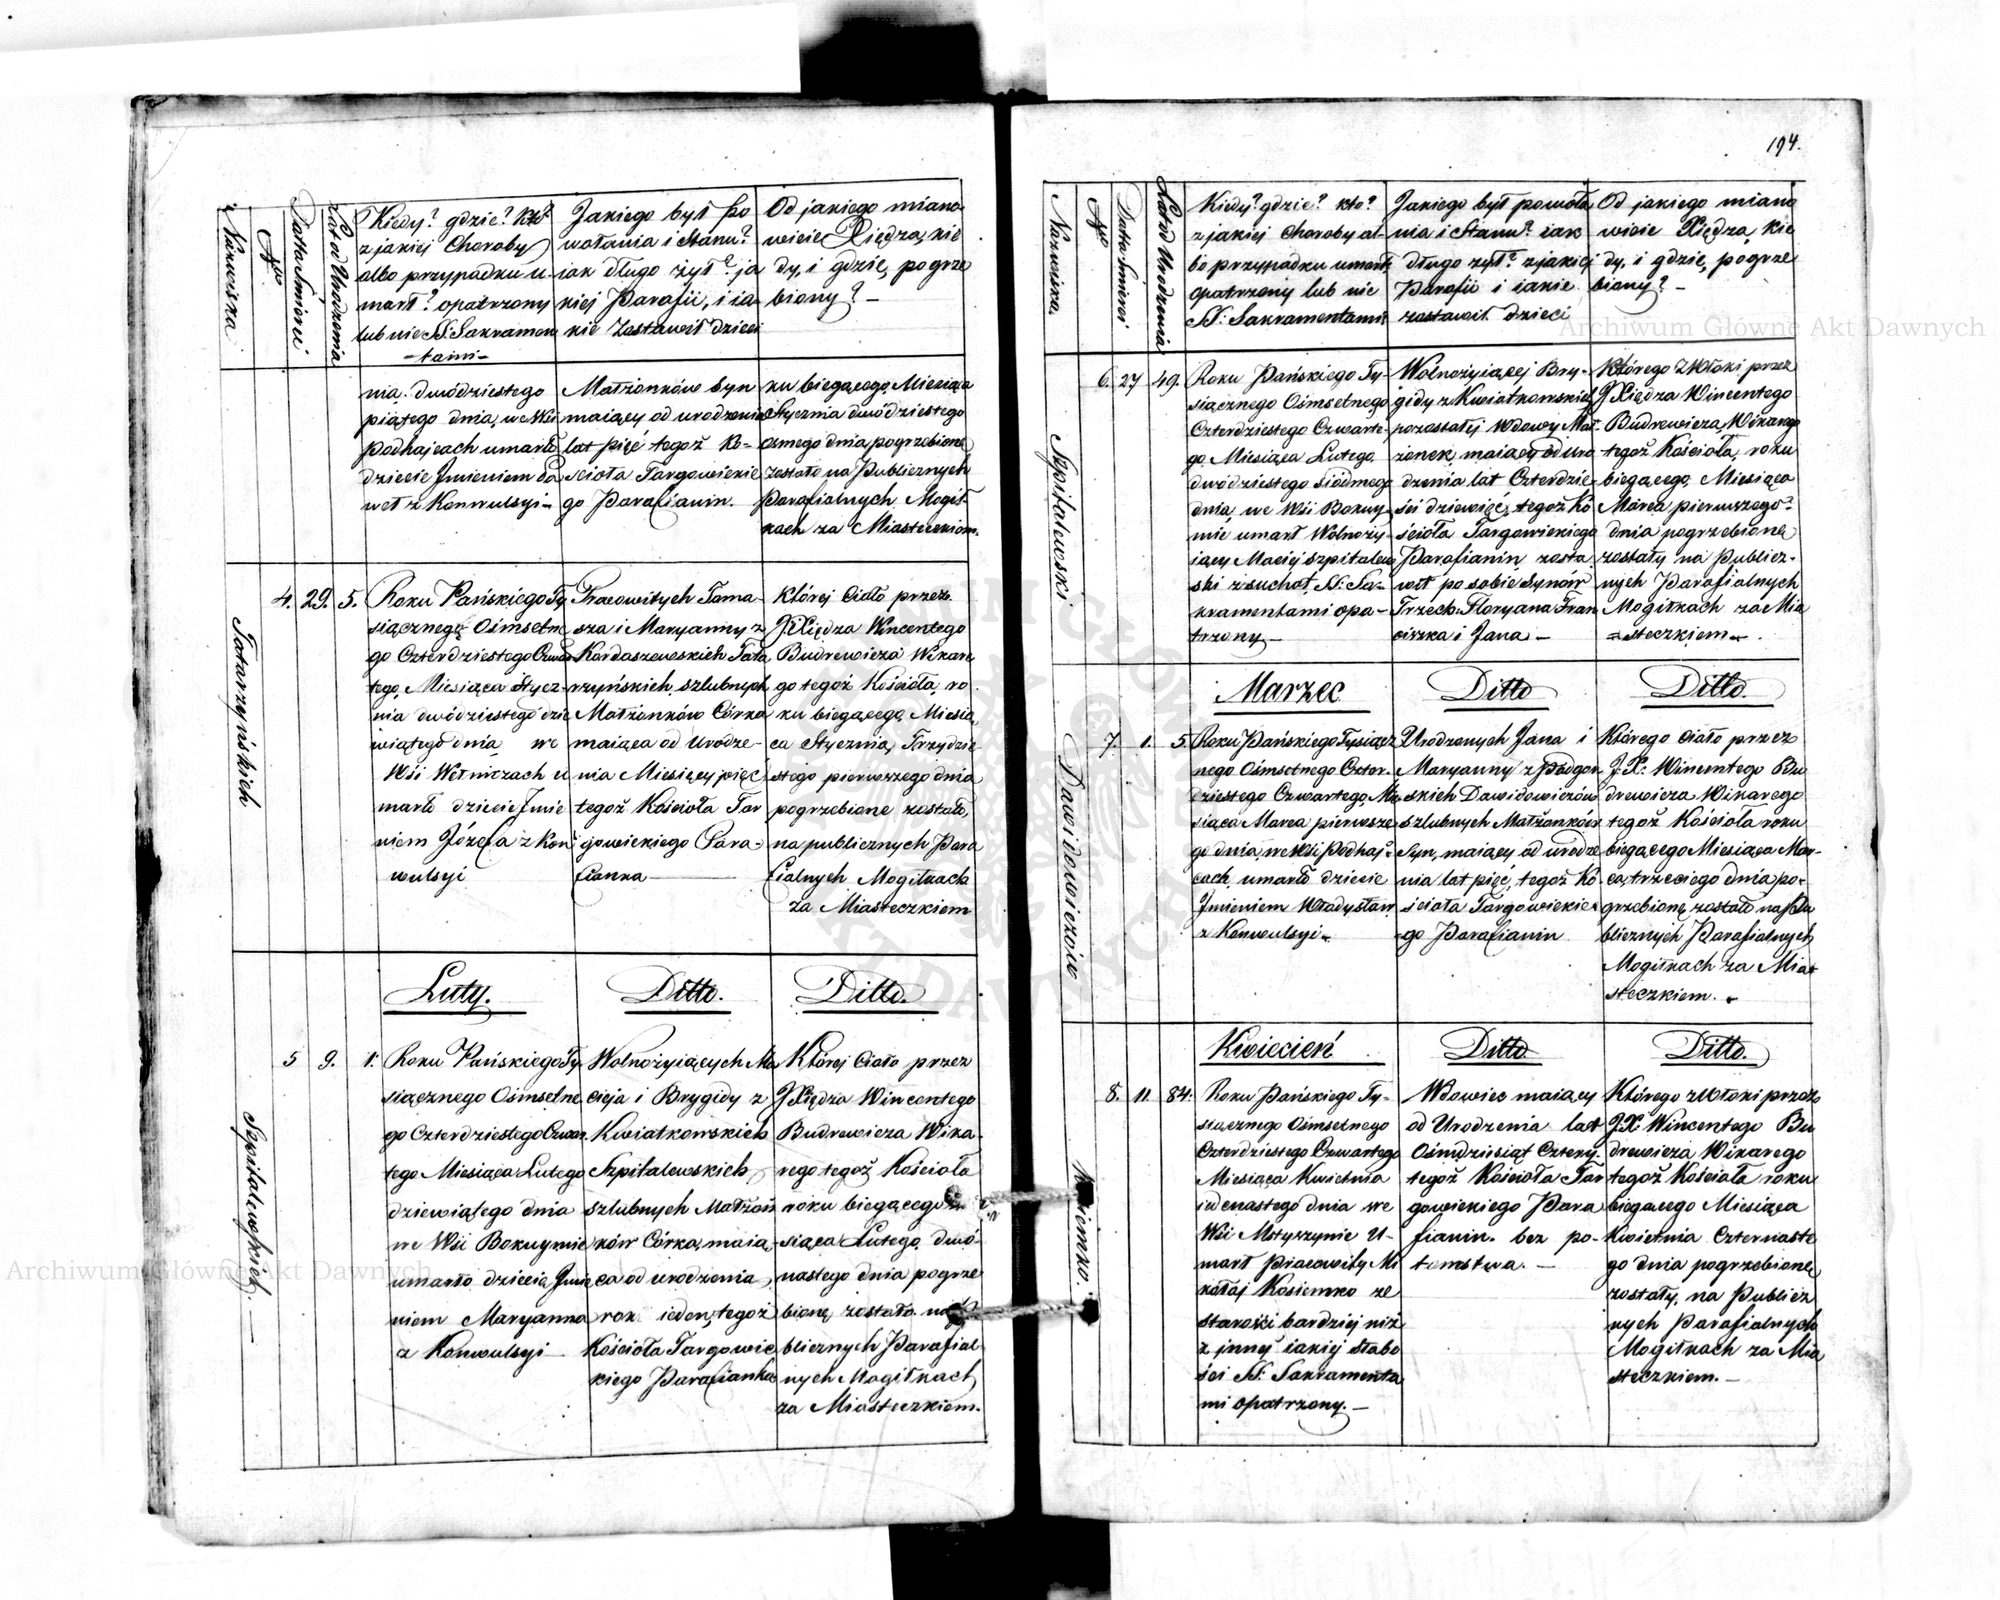 194.
Nazwiska
No
Datta Śmierci
Lat od Urodzenia
Kiedy? gdzie? Kto?
z jakiej Choroby
albo przypadku u-
marł? opatrzony
lub nie SS: Sakramen
-tami-
Jakiego był po
wołania i Stanu?
iak długo żył? ja
kiej Parafii, i ia-
kie Zostawił dzieci
Od jakiego miano-
wicie Xiędza, kie
dy, i gdzie, pogrze
biony? -
nia dwódziestego
piątego dnia, we Wsi
Podhajcach umarło
dziecie Jmieniem
z Konwulsyi-
Małżonków Syn
maiący od urodzenia
lat pięć tegoż Ko-
ścioła Targowickie
go Parafianin.
ku biegącego, Miesiąca
Stycznia dwódziestego
osmego dnia pogrzebione
zostało na Publicznych
Parafialnych Mogił-
kach za Miasteczkiem.
Tatarzyńskich
4. 29. 5.
Roku Pańskiego Ty
siącznego Ośmsetne
go Czterdziestego Czwar
tego, Miesiąca Stycz-
nia dwódziestego dzie
wiątego dnia we
Wsi Wetniczach u
marło dziecie Jmie
niem Józefa z Kon
wulsyi
Pracowitych Toma-
sza i Maryanny z
Kardaszewskich Tata
rzyńskich, szlubnych
Małżonków Córka
maiąca od Urodze-
nia Miesięcy pięć
tegoż Kościoła Tar
gowickiego Para-
fianka
Której Ciało przez
JXiędza Wincentego
Budrewicza Wikare
go tegoż Kościoła, ro
ku biegącego, Miesią
ca Stycznia, Trzydzie
stego pierwszego dnia
pogrzebione zostało,
na publicznych Para
fialnych Mogiłkach
za Miasteczkiem
Luty.
Ditto.
Ditto.
Szpitalewskich.
5 9. 1.
Roku Pańskiego Ty
siącznego Ośmsetne
go Czterdziestego Czwar
tego Miesiąca Lutego
dziewiątego dnia
we Wsi Bokuymie
umarło dziecie Jmie
niem Maryanna
z Konwulsyi
Wolnożyiących Ma
cieja i Brygidy z
Kwiatkowskich
Szpitalewskich,
szlubnych Małżon
ków Córka, maią
ca od urodzenia
rok ieden, tegoż
Kościoła Targowic
kiego Parafianka
Której Ciało przez
JXiędza Wincentego
Budrewicza Wika-
rego tegoż Kościoła
roku biegącego
siąca Lutego, dwó-
nastego dnia pogrze
bione zostało na
blicznych Parafial
nych Mogiłkach
za Miasteczkiem.
Nazwiska
No
Datta Śmierci
Lat od Urodzenia
Kiedy? gdzie? kto?
z jakiej Choroby al-
bo przypadku umarł
opatrzony lub nie
SS: Sakramentami
Jakiego był powoła
nia i Stanu? iak
długo żył? z jakiej
Parafii i iakie
zostawił dzieci
Od jakiego miano
wicie Xiędza, kie
dy, i gdzie, pogrze
biony? -
Szpitalewski
6. 27 49.
Roku Pańskiego Ty-
siącznego Ośmsetnego
Czterdziestego Czwarte
go, Miesiąca Lutego
dwódziestego siódmego
dnia, we Wsi Bokuy-
mie umarł Wolnoży-
iący Maciej Szpitalew
ski z suchot, SS: Sa-
kramentami opa-
trzony-
Wolnożyiącej Bry-
gidy z Kwiatkowskich
pozostałej Wdowy Mał-
żonek, maiący od uro
dzenia lat Czterdzie-
ści dziewięć, tegoż Ko
ścioła Targowickiego
Parafianin, zosta
wił po sobie Synów
Trzech: Floryana Fran
ciszka i Jana-
Którego Zwłoki przez
JXiędza Wincentego
Budrewicza, Wikarego
tegoż Kościoła, roku
biegącego, Miesiąca
Marca pierwszego
dnia pogrzebione
zostały na Publicz-
nych Parafialnych
Mogiłkach za Mia
-steczkiem-
Marzec
Ditto
Ditto.
Dawidowiczów
7. 1. 5.
Roku Pańskiego Tysiącz
nego Ośmsetnego Czter-
dziestego Czwartego, Mie
siąca Marca pierwsze
go dnia, we Wsi Podhaj-
cach umarło dziecie
Jmieniem Władysław
z Konwulsyi-
Urodzonych Jana i
Maryanny z Podgor
skich Dawidowiczów
szlubnych Małżonków
Syn, maiący od urodze
nia lat pięć, tegoż Ko
ścioła Targowickie
-go Parafianin
Którego ciało przez
J.X: Wincentego Bu
drewicza Wikarego
tegoż Kościoła roku
biegącego Miesiąca Mar-
ca, trzeciego dnia po-
grzebione, zostało na Pu
blicznych Parafialnych
Mogiłkach za Mia
steczkiem.
Kwiecień
Ditto
Ditto.
Kosiemko.
8. 11 84.
Roku Pańskiego Ty-
siącznego Ośmsetnego
Czterdziestego Czwartego
Miesiąca Kwietnia
iedenastego dnia we
Wsi Motyszynie U-
marł Pracowity Mi
kołaj Kosiemko ze
starości bardziej niż
z innej iakiej słabo
ści SS: Sakramenta
mi opatrzony.-
Wdowiec maiący
od Urodzenia lat
Ośmdziesiąt Cztery.
tegoż Kościoła Tar
gowickiego Para
fianin. bez po-
tomstwa. -
Którego zwłoki przez
J.X: Wincentego Bu
drewicza Wikarego
tegoż Kościoła roku
biegącego Miesiąca
Kwietnia Czternaste
go dnia pogrzebione
zostały, na Publicz
nych Parafialnych
Mogiłkach za Mia
steczkiem.-
Archiwum Główne Akt Dawnych
Archiwum Główne Akt Dawnych